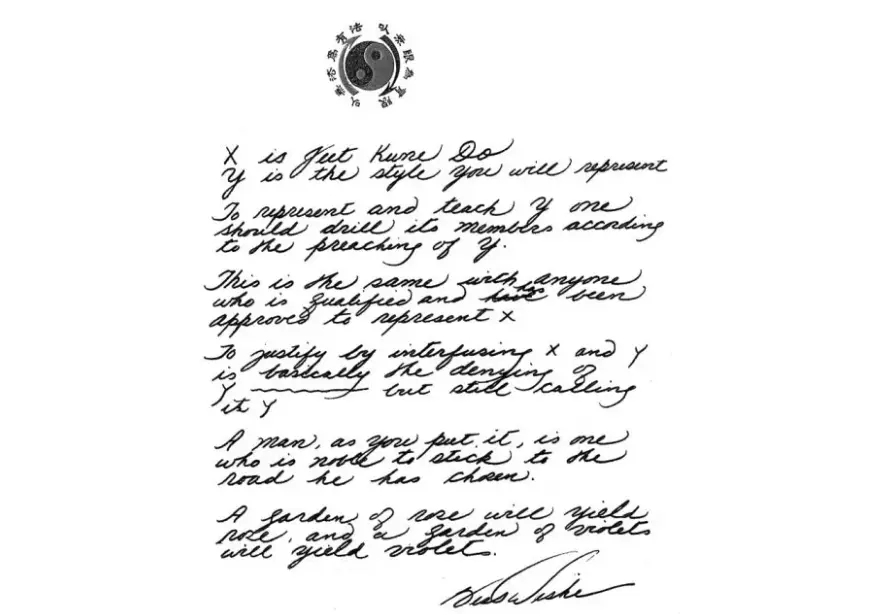 以無法為有法
以無限為有限
X is Jeet Kune Do
Y is the style you will represent
To represent and teach Y one
should drill its members according
to the preaching of Y.
This is the same with anyone
who is qualified and has been
approved to represent X
To justify by interfusing X and Y
is basically the denying of
Y but still calling
it Y
A man, as you put it, is one
who is noble to stick to the
road he has chosen.
A garden of rose will yield
rose, and a garden of violets
will yield violets.
Best Wishes